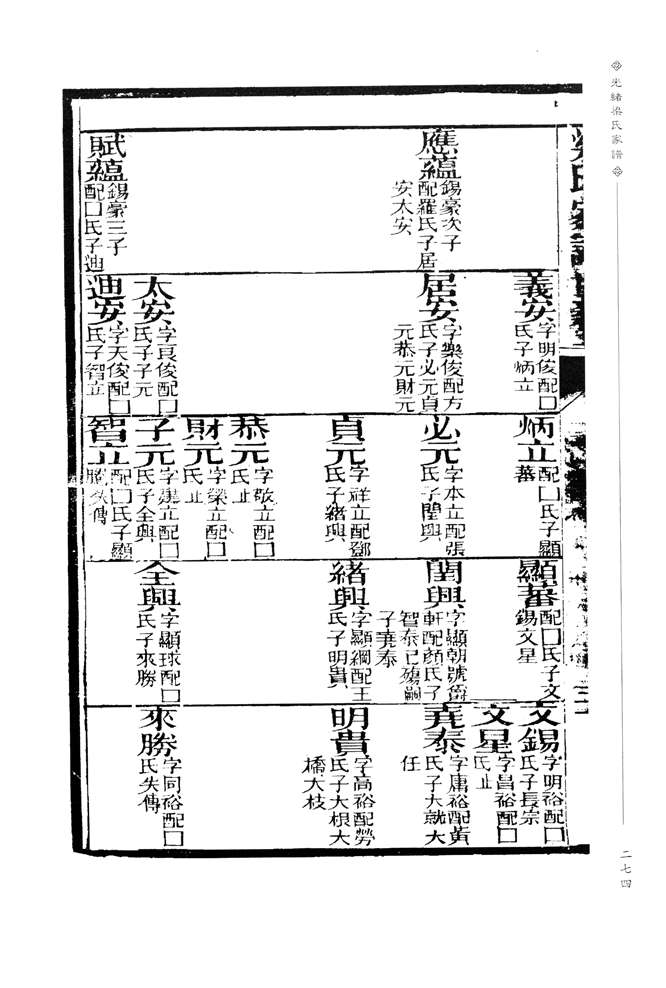 光緒梁氏家譜
二七四
應蘊
錫豪次子
配羅氏子居
安太安
賦蘊
錫豪三子
配囗氏子迪
義安
字明俊配囗
氏子炳立
居安
字樂俊配方
氏子必元貞
元恭元財元
太安
字良俊配囗
氏子子元
迪安
字天俊配囗
氏子智立
炳立
配囗氏子顯
蕃
必元
字本立配張
氏子閏興
貞元
字祥立配鄧
氏子緒興
恭元
字敬立配囗
氏止
財元
字榮立配囗
氏止
子元
字建立配囗
氏子全興
智立
配囗氏子顯
失傳
顯蕃
配囗氏子文
錫文星
閏興
字顯朝號爵
軒配顏氏子
智泰已殤嗣
子堯泰
緒興
字顯綱配王
氏子明貴
全興
字顯球配囗
氏子來勝
文錫
字明裕配囗
氏子長宗
文星
字昌裕配囗
氏止
堯泰
字庸裕配黃
氏子大就大
任
明貴
字高裕配勞
氏子大根大
橋大枝
來勝
字同裕配囗
氏失傳